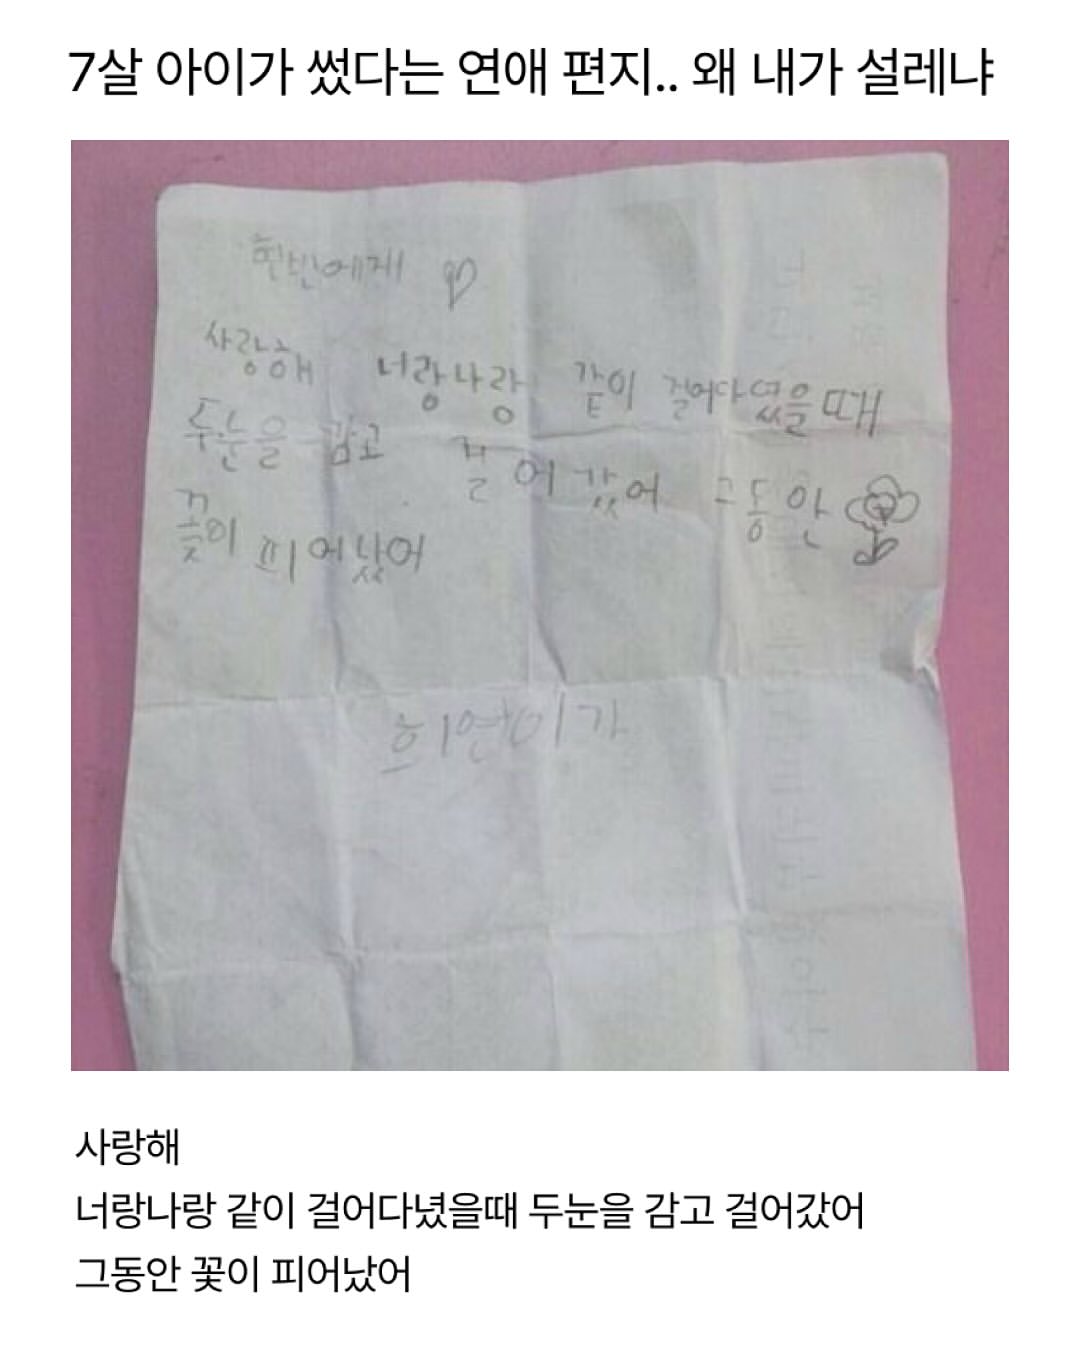 7살 아이가 썼다는 연애 편지.. 왜 내가 설레냐
힌빈에게
사랑해 너랑나랑 같이 걸어다녔을때
두눈을 감고 걸어갔어 그동안
꽃이 피어났어
희연이가
사랑해
너랑나랑 같이 걸어다녔을때 두눈을 감고 걸어갔어
그동안 꽃이 피어났어